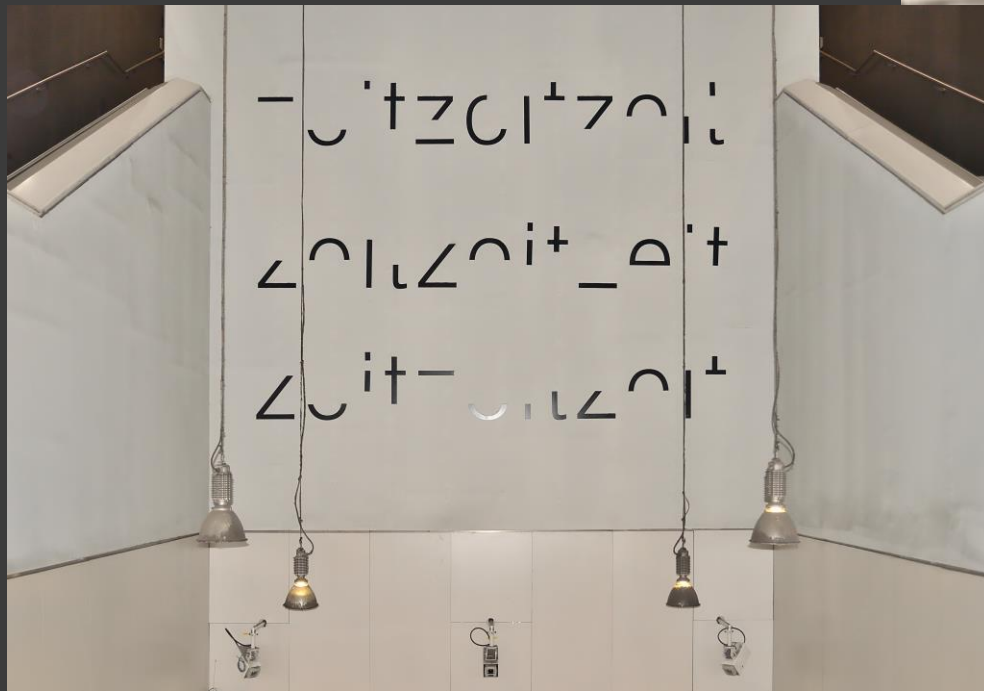 zeitzeitzeit
zeitzeitzeit
zeitzeitzeit